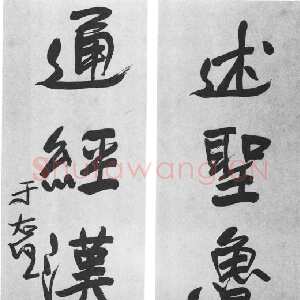 述聖魯
通經漢
于右任
Shufawang.CN